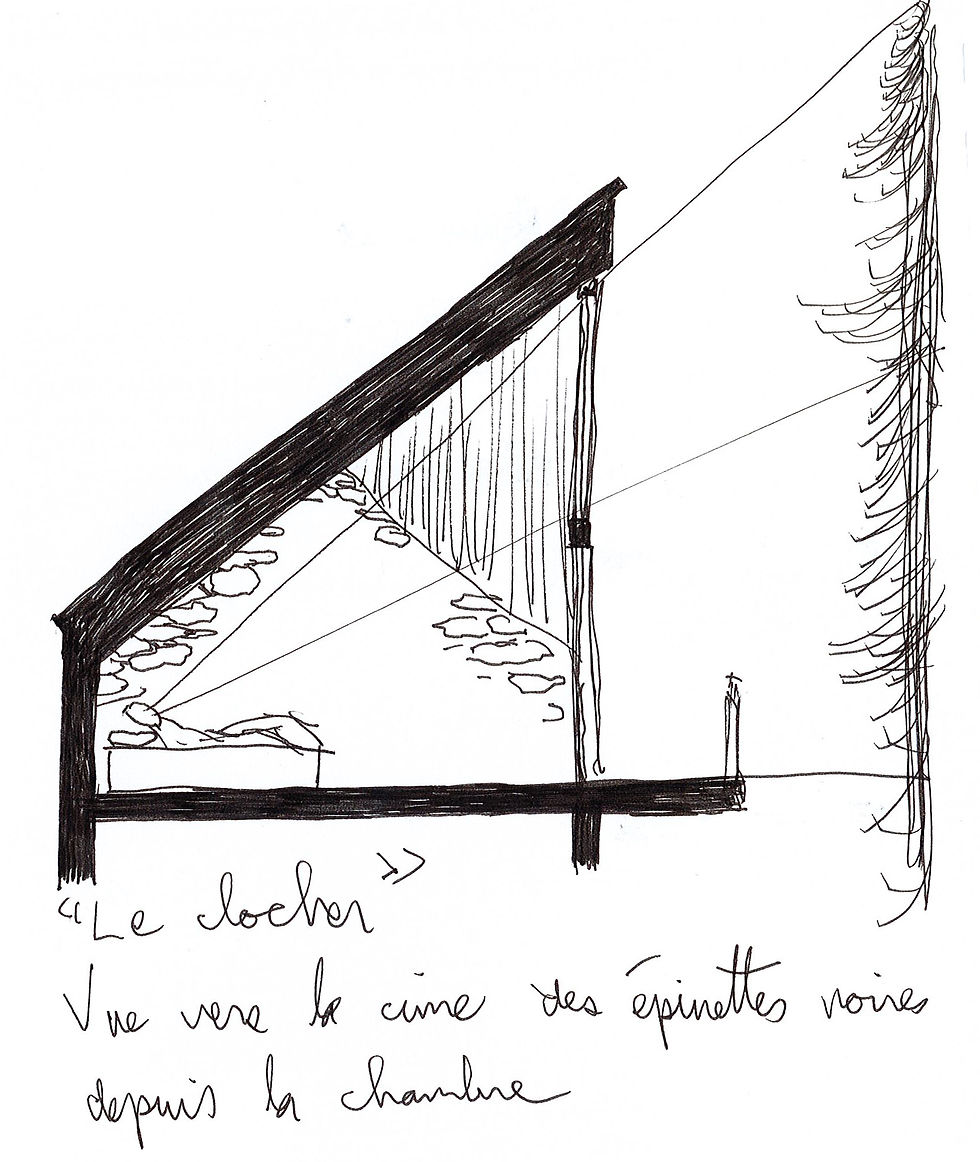 “Le clocher”
Vue vers la cime des épinettes noires
depuis la chambre